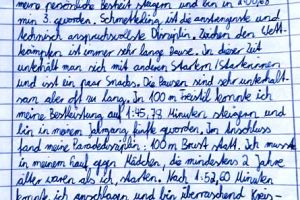 meine persönliche Bestzeit steigern und bin in 1:00,68
min 3. geworden. Schmetterling ist die anstrengenste und
technisch anspruchsvollste Disziplin. Zwischen den Wett-
kämpfen ist immer sehr lange Pause. In dieser Zeit
unterhält man sich mit anderen Startern/Starterinnen
und isst ein paar Snacks. Die Pausen sind sehr unterhalt-
sam aber oft zu lang. Im 100 m Freistil konnte ich
meine Bestleistung auf 1:45,73 Minuten steigern und
bin in meinem Jahrgang fünfte geworden. Im Anschluss
fand meine Paradedisziplin: 100 m Brust statt. Ich musste
in meinem Lauf gegen Mädchen, die mindestens 2 Jahre
älter waren als ich, starten. Nach 1:52,60 Minuten
konnte ich anschlagen und bin überraschend Kreis-